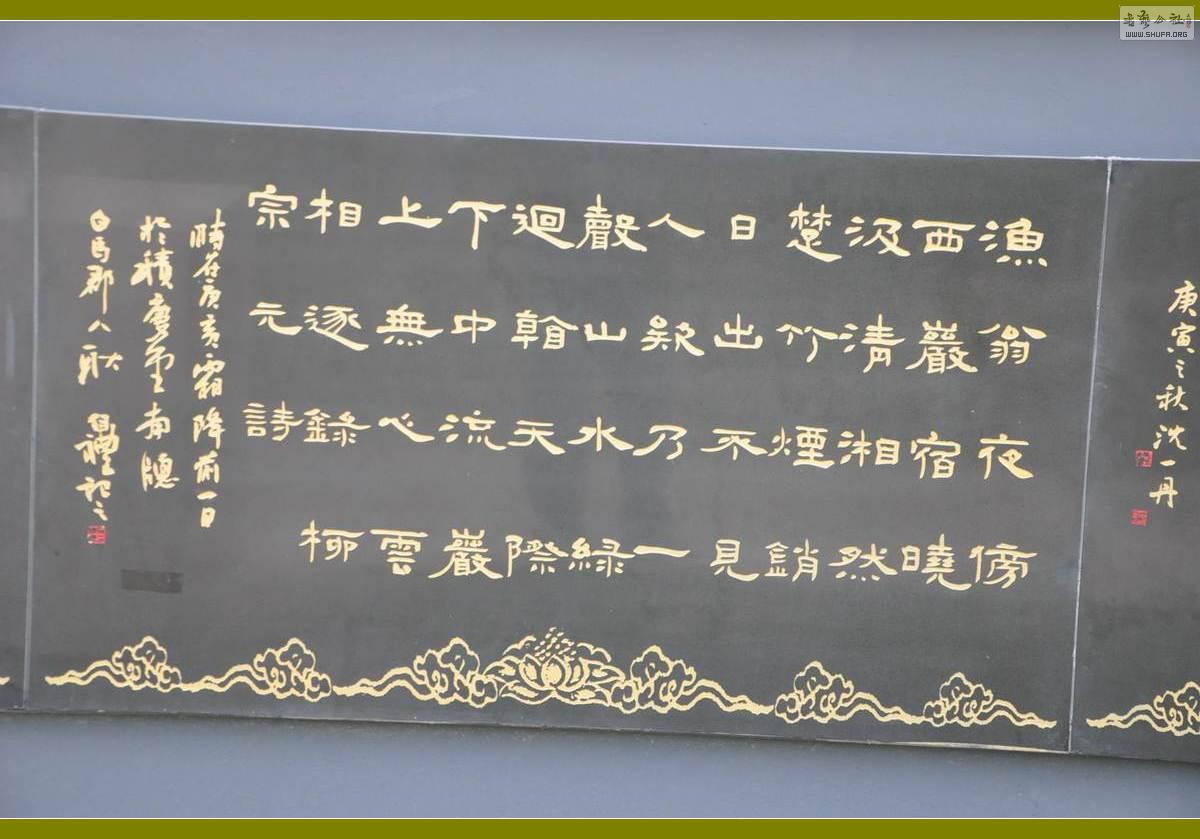 書藝公社
WWW.SHUFA.ORG
庚寅之秋沈一丹
漁翁夜傍
西巖宿曉
汲清湘然
楚竹煙銷
日出不見
人欸乃一
聲山水綠
迴看天際
下中流巖
上無心雲
相逐錄柳
宗元詩
時在庚寅霜降前一日
於積慶堂南牕
白馬郡人耿自禮記之